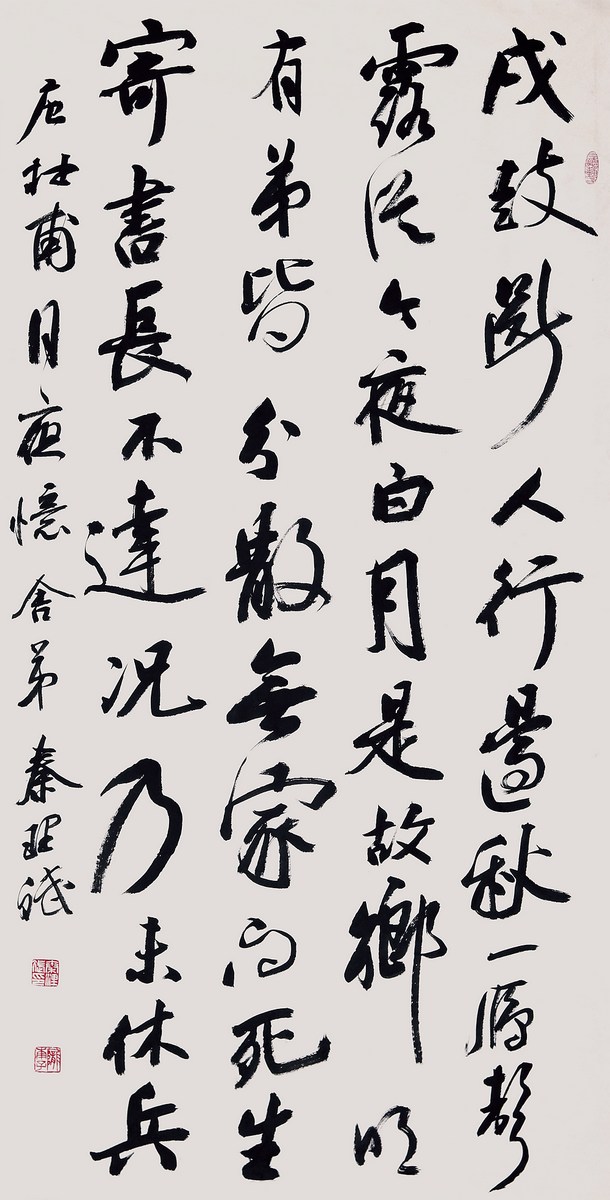 戍鼓斷人行邊秋一鴈聲
露從今夜白月是故鄉明
有弟皆分散無家問死生
寄書長不達況乃未休兵
唐杜甫月夜憶舍弟 秦理斌